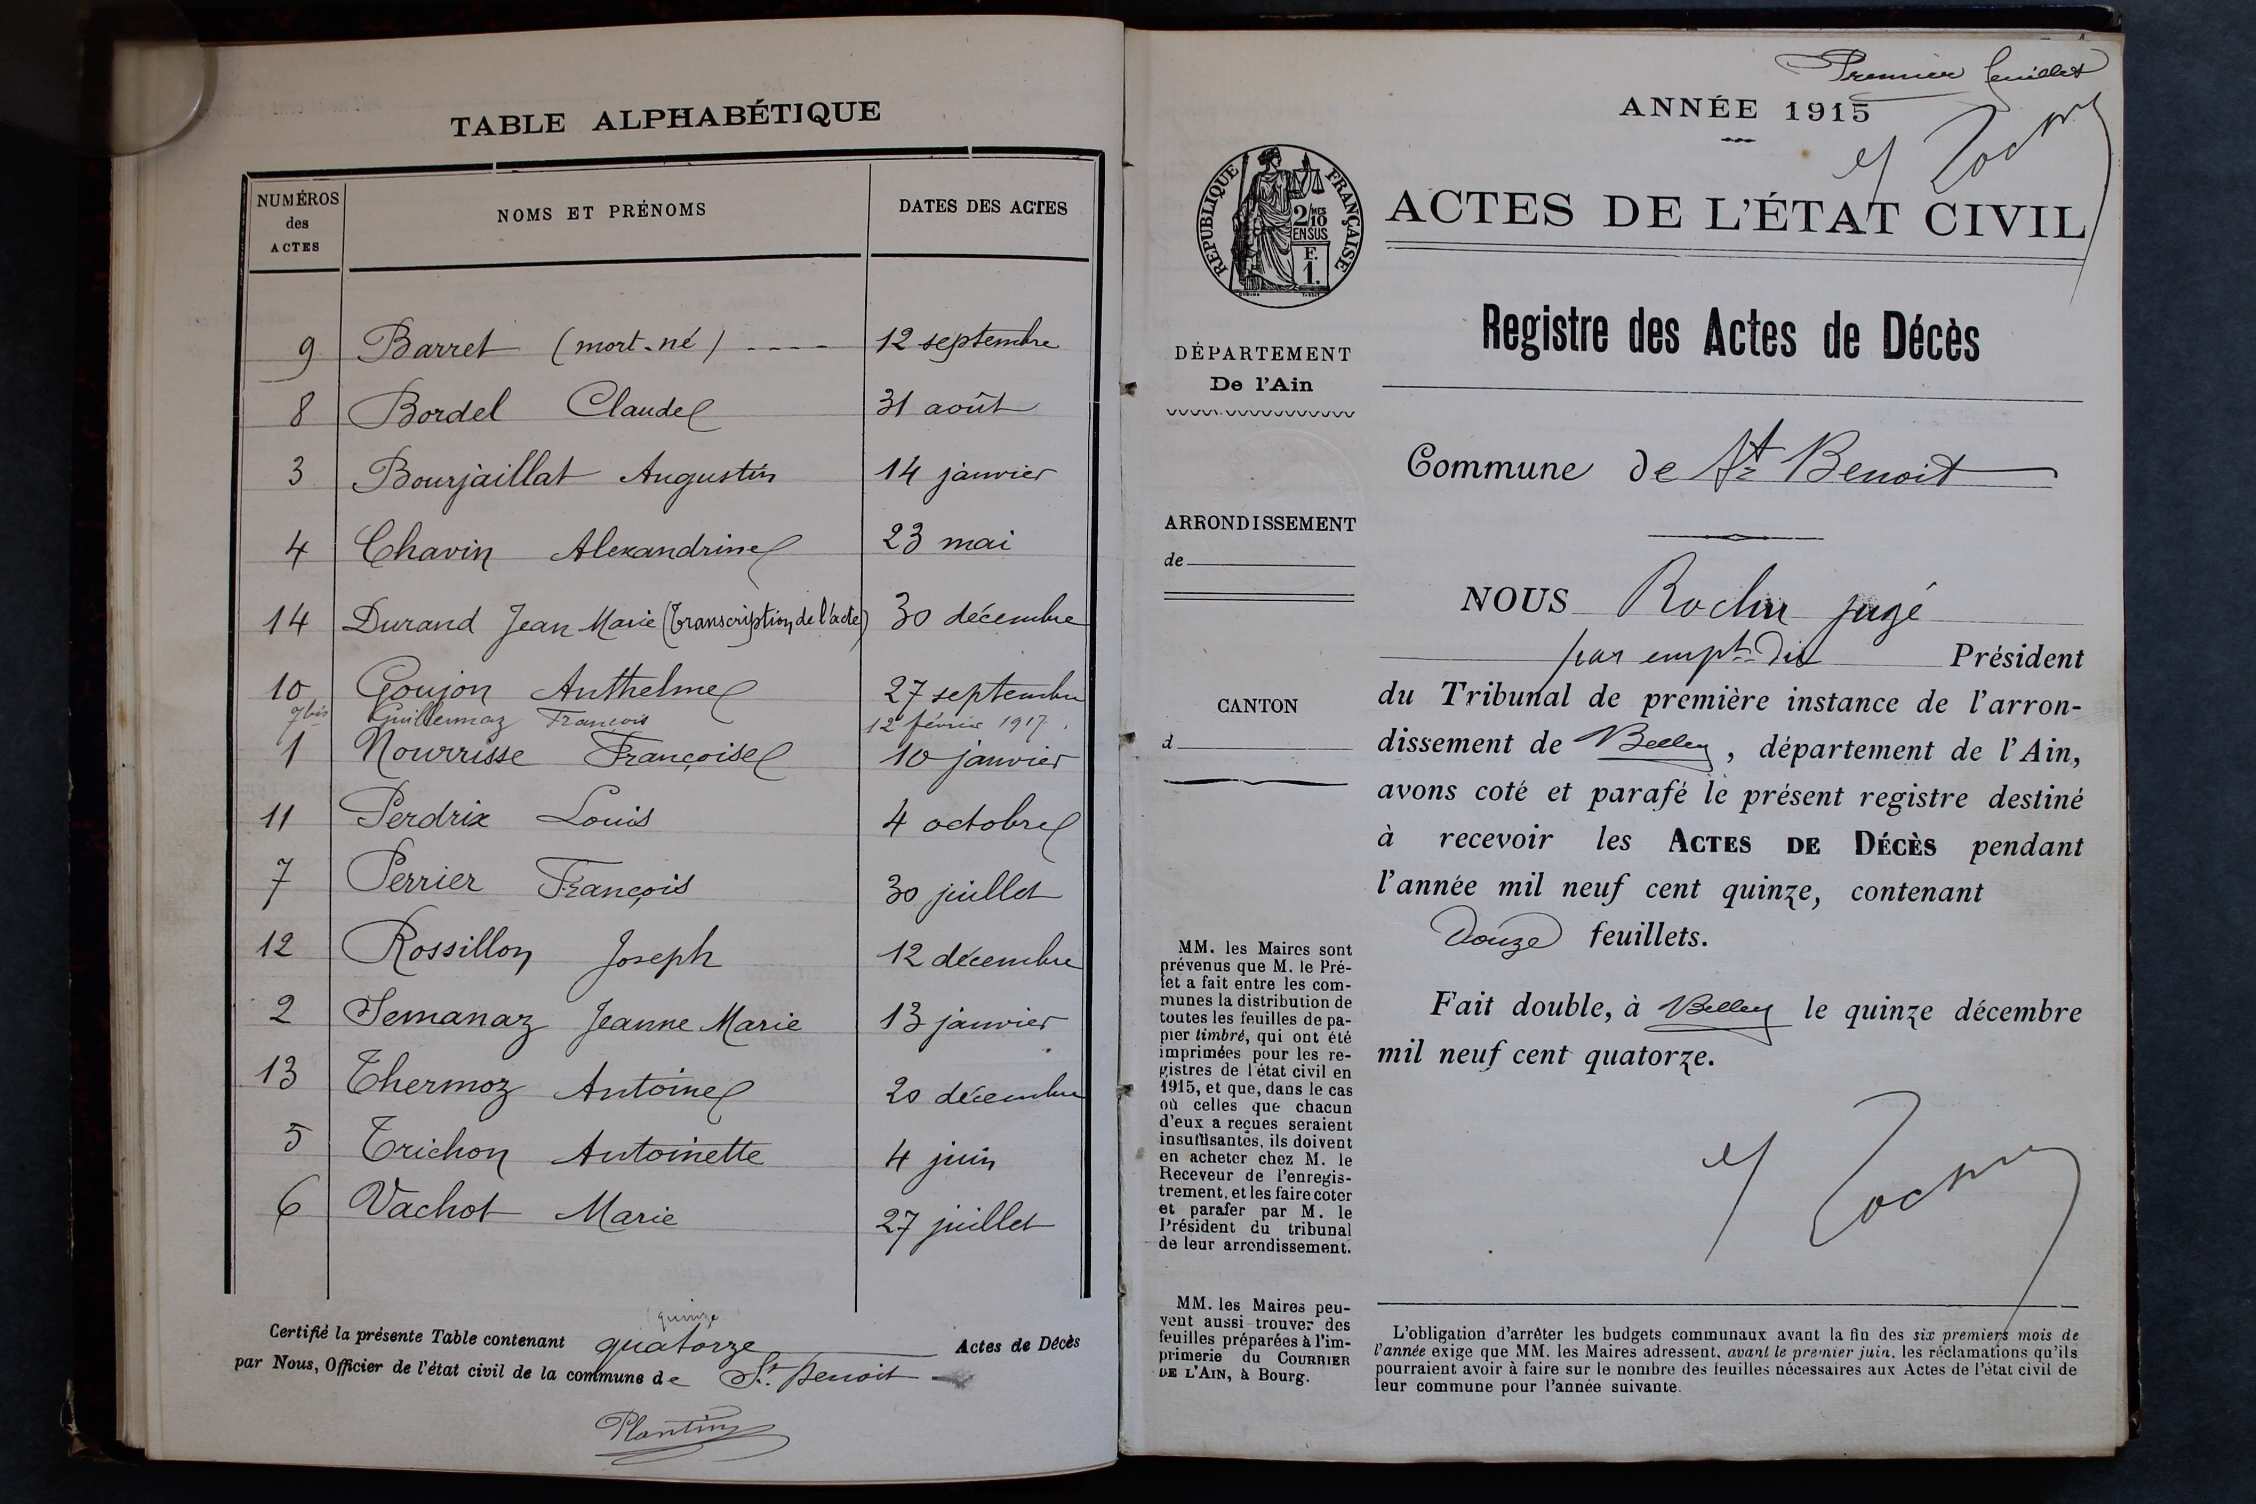 TABLE ALPHABÉTIQUE
NUMÉROS des ACTES NOMS ET PRÉNOMS DATES DES ACTES
9 Barret (mort-né) ---- 12 septembre
8 Bordel Claude 31 août
3 Bourjaillat Augustin 14 janvier
4 Chavin Alexandrine 23 mai
14 Durand Jean Marie (transcription de l'acte) 30 décembre
10 Goujon Anthelme 27 septembre
7 bis Guillermaz François 12 février 1917.
1 Nourrisse Françoise 10 janvier
11 Perdrix Louis 4 octobre
7 Perrier François 30 juillet
12 Rossillon Joseph 12 décembre
2 Semanaz Jeanne Marie 13 janvier
13 Thermoz Antoine 20 décembre
5 Trichon Antoinette 4 juin
6 Vachot Marie 27 juillet
quinze
Certifié la présente Table contenant quatorze Actes de Décès
par Nous, Officier de l'état civil de la commune de St. Benoit
Plantin
Premier feuillet
ANNÉE 1915
RÉPUBLIQUE FRANÇAISE
2/10 MES
EN SUS
F.
1.
ACTES DE L'ÉTAT CIVIL
Registre des Actes de Décès
DÉPARTEMENT
De l'Ain
ARRONDISSEMENT
de
CANTON
d
MM. les Maires sont
prévenus que M. le Pré-
fet a fait entre les com-
munes la distribution de
toutes les feuilles de pa-
pier timbré, qui ont été
imprimées pour les re-
gistres de l'état civil en
1915, et que, dans le cas
où celles que chacun
d'eux a reçues seraient
insuffisantes, ils doivent
en acheter chez M. le
Receveur de l'enregis-
trement, et les faire coter
et parafer par M. le
Président du tribunal
de leur arrondissement.
MM. les Maires peu-
vent aussi trouver des
feuilles préparées à l'im-
primerie du COURRIER
DE L'AIN, à Bourg.
Commune de St Benoit
NOUS juge
par empt. du Président
du Tribunal de première instance de l'arron-
dissement de Belley, département de l'Ain,
avons coté et parafé le présent registre destiné
à recevoir les ACTES DE DÉCÈS pendant
l'année mil neuf cent quinze, contenant
Douze feuillets.
Fait double, à Belley le quinze décembre
mil neuf cent quatorze.
L'obligation d'arrêter les budgets communaux avant la fin des six premiers mois de
l'année exige que MM. les Maires adressent, avant le premier juin, les réclamations qu'ils
pourraient avoir à faire sur le nombre des feuilles nécessaires aux Actes de l'état civil de
leur commune pour l'année suivante.